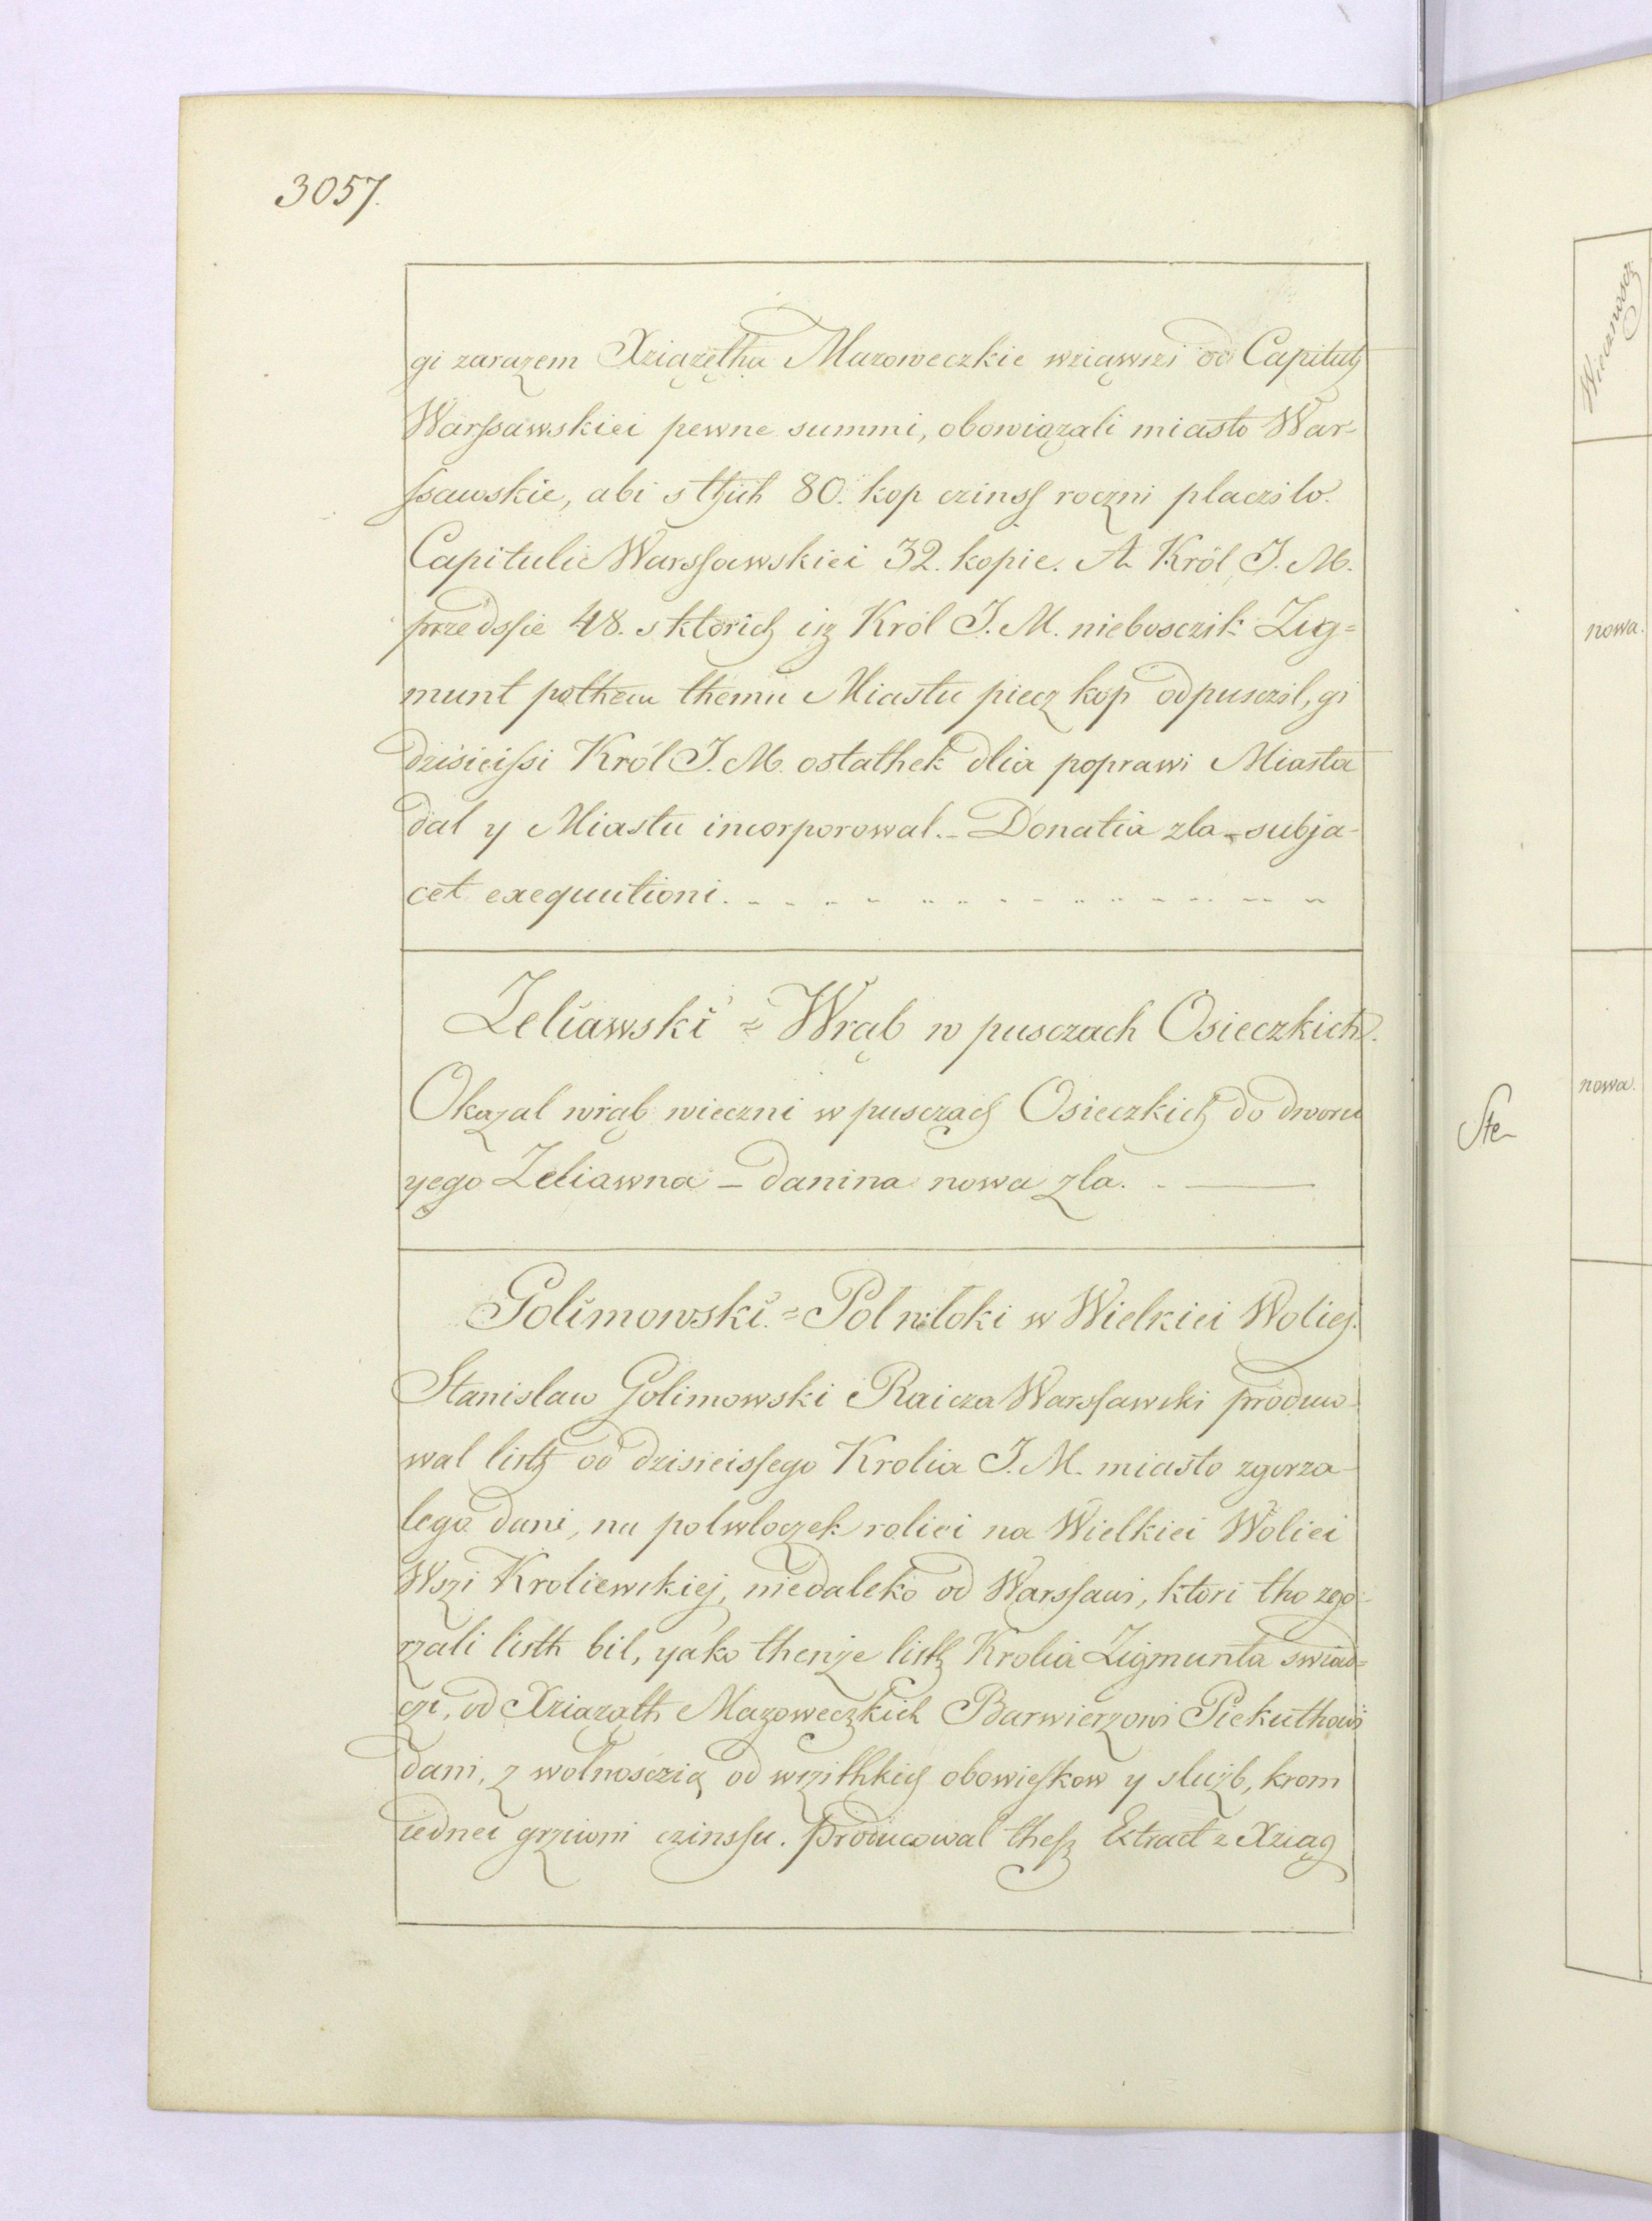 3057.
gi zarazem Xziązętha Mazoweczkie wziąwszi od Capituly
Warssawskiei pewne summi, obowiązali miasto War-
ssawskie, abi s thich 80. kop czinss roczni placzilo.
Capitulie Warssawskiei 32. kopie. A Król J. M.
przedssie 48. s ktorich isz Król J. M. niebosczik Zig=
munt pothem themu Miastu piecz kop odpusczil, gi
dzisieissi Król J. M. ostathek dlia poprawi Miasta
dal y Miastu incorporowal. - Donatia zla - subja-
cet exequutioni.
Zeliawski = Wrąb w pusczach Osieczkich.
Okazal wrąb wieczni w pusczach Osieczkich do dworu
yego Zeliawna - danina nowa zla.
Golimowski. = Pol wloki w Wielkiei Woliej.
Stanislaw Golimowski Raicza Warssawski produco-
wal listh od dzisieissego Krolia J. M. miasto zgorza-
lego dani, na polwloczek roliei na Wielkiei Woliei
Wszi Kroliewskiej, niedaleko od Warssawi, ktori tho zgo-
rzali listh bil, yako thenze listh Krolia Zigmunta swiad=
czi, od Xziazath Mazoweczkich Barwierzowi Piekuthowi
dani, z wolnosczią od wszithkich obowieskow y służb, krom
iednei grziwni czinssu. Producowal thesz Extract z Xziąg
Wiecznoscz
nowa.
nowa.
Ste-